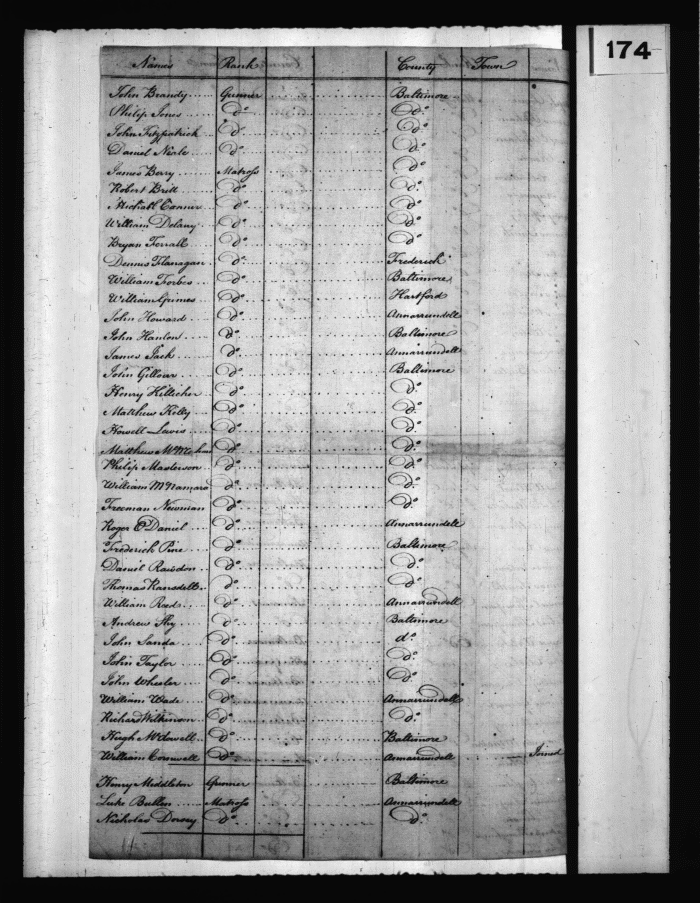 174
Names Rank County Town
John Brandy Gunner Baltimore
Philip Jones do do
John Fitzpatrick do do
Daniel Neale do do
James Berry Matross do
Robert Britt do do
Michael Connor do do
William Delany do do
Bryan Ferrall do do
Dennis Flanagan do Frederick
William Forbes do Baltimore
William Grimes do Hartford
John Howard do Annarrundell
John Hanlon do Baltimore
James Jack do Annarrundell
John Gillour do Baltimore
Henry do do
Matthew Kelly do do
Howell Lewis do do
Matthew do do
Philip Masterson do do
William McNamara do do
Freeman Newman do do
Roger O Daniel do Annarrundell
Frederick Pine do Baltimore
Daniel Rawdon do do
Thomas Ransdell do do
William Reed do Annarrundell
Andrew Shy do Baltimore
John Sands do do
John Taylor do do
John Wheeler do do
William Wade do Annarrundell
Richard Wilkinson do do
Hugh McDowell do Baltimore
William Cornwell do Annarrundell Joined
Henry Middleton Gunner Baltimore
Luke Matross Annarrundell
Nicholas Dorsey do do